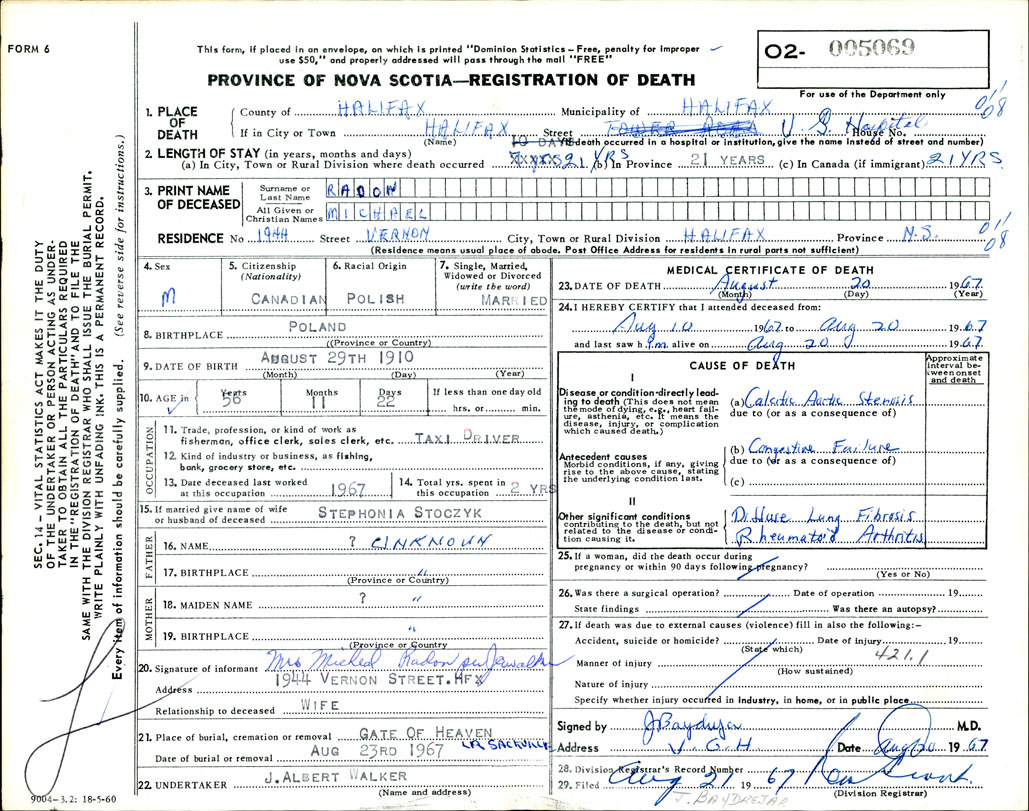 FORM 6
This form, if placed in an envelope, on which is printed "Dominion Statistics – Free, penalty for improper
use $50," and properly addressed will pass through the mail "FREE"
PROVINCE OF NOVA SCOTIA—REGISTRATION OF DEATH
O2- 005069
For use of the Department only
SEC. 14 – VITAL STATISTICS ACT MAKES IT THE DUTY
OF THE UNDERTAKER OR PERSON ACTING AS UNDER-
TAKER TO OBTAIN ALL THE PARTICULARS REQUIRED
IN THE "REGISTRATION OF DEATH" AND TO FILE THE
SAME WITH THE DIVISION REGISTRAR WHO SHALL ISSUE THE BURIAL PERMIT.
WRITE PLAINLY WITH UNFADING INK. THIS IS A PERMANENT RECORD.
Every item of information should be carefully supplied. (See reverse side for instructions.)
1. PLACE OF DEATH
County of HALIFAX Municipality of HALIFAX 01/08
If in City or Town HALIFAX Street TOWER ROAD V. G. Hospital House No.
(Name) 10 DAYS (If death occurred in a hospital or institution, give the name instead of street and number)
2. LENGTH OF STAY (in years, months and days)
(a) In City, Town or Rural Division where death occurred 21 YRS (b) In Province 21 YEARS (c) In Canada (if immigrant) 21 YRS.
3. PRINT NAME OF DECEASED
Surname or Last Name RADON
All Given or Christian Names MICHAEL
RESIDENCE No 1944 Street VERNON City, Town or Rural Division HALIFAX Province N.S. 01/08
(Residence means usual place of abode. Post Office Address for residents in rural parts not sufficient)
4. Sex M
5. Citizenship (Nationality) CANADIAN
6. Racial Origin POLISH
7. Single, Married, Widowed or Divorced (write the word) MARRIED
8. BIRTHPLACE POLAND
((Province or Country)
9. DATE OF BIRTH AUGUST 29TH 1910
(Month) (Day) (Year)
10. AGE in Years 56 Months 11 Days 22 If less than one day old hrs. or min.
OCCUPATION
11. Trade, profession, or kind of work as
fisherman, office clerk, sales clerk, etc. TAXI DRIVER
12. Kind of industry or business, as fishing,
bank, grocery store, etc.
13. Date deceased last worked at this occupation 1967
14. Total yrs. spent in this occupation 2 YRS
15. If married give name of wife or husband of deceased STEPHONIA STOCZYK
FATHER
16. NAME ? UNKNOWN
17. BIRTHPLACE "
(Province or Country)
MOTHER
18. MAIDEN NAME ? "
19. BIRTHPLACE "
(Province or Country
20. Signature of informant Mrs Micheal Radon per Jawalker
Address 1944 VERNON STREET. HFX
Relationship to deceased WIFE
21. Place of burial, cremation or removal GATE OF HEAVEN
LR. SACKVILLE
Date of burial or removal AUG 23RD 1967
22. UNDERTAKER J. ALBERT WALKER
(Name and address)
9004–3.2: 18-5-60
MEDICAL CERTIFICATE OF DEATH
23. DATE OF DEATH August 20 1967
(Month) (Day) (Year)
24. I HEREBY CERTIFY that I attended deceased from:
Aug 10 1967 to Aug 20 1967
and last saw him alive on Aug 20 1967.
CAUSE OF DEATH
Approximate interval be-tween onset and death
I
Disease or condition directly lead-
ing to death (This does not mean
the mode of dying, e.g., heart fail-
ure, asthenia, etc. It means the
disease, injury, or complication
which caused death.)
(a) Calcific Aortic Stenosis
due to (or as a consequence of)
Antecedent causes
Morbid conditions, if any, giving
rise to the above cause, stating
the underlying condition last.
(b) Congestive Failure
due to (or as a consequence of)
(c)
II
Other significant conditions
contributing to the death, but not
related to the disease or condi-
tion causing it.
Diffuse Lung Fibrosis
Rheumatoid Arthritis
25. If a woman, did the death occur during
pregnancy or within 90 days following pregnancy?
(Yes or No)
26. Was there a surgical operation? Date of operation 19
State findings Was there an autopsy?
27. If death was due to external causes (violence) fill in also the following:–
Accident, suicide or homicide? Date of injury 19
(State which) 421.1
Manner of injury
(How sustained)
Nature of injury
Specify whether injury occurred in industry, in home, or in public place
Signed by J Baydrejar M.D.
Address V.G.H Date Aug 20 1967
28. Division Registrar's Record Number
29. Filed Aug 21 1967
(Division Registrar)
J. BAYDREJAR